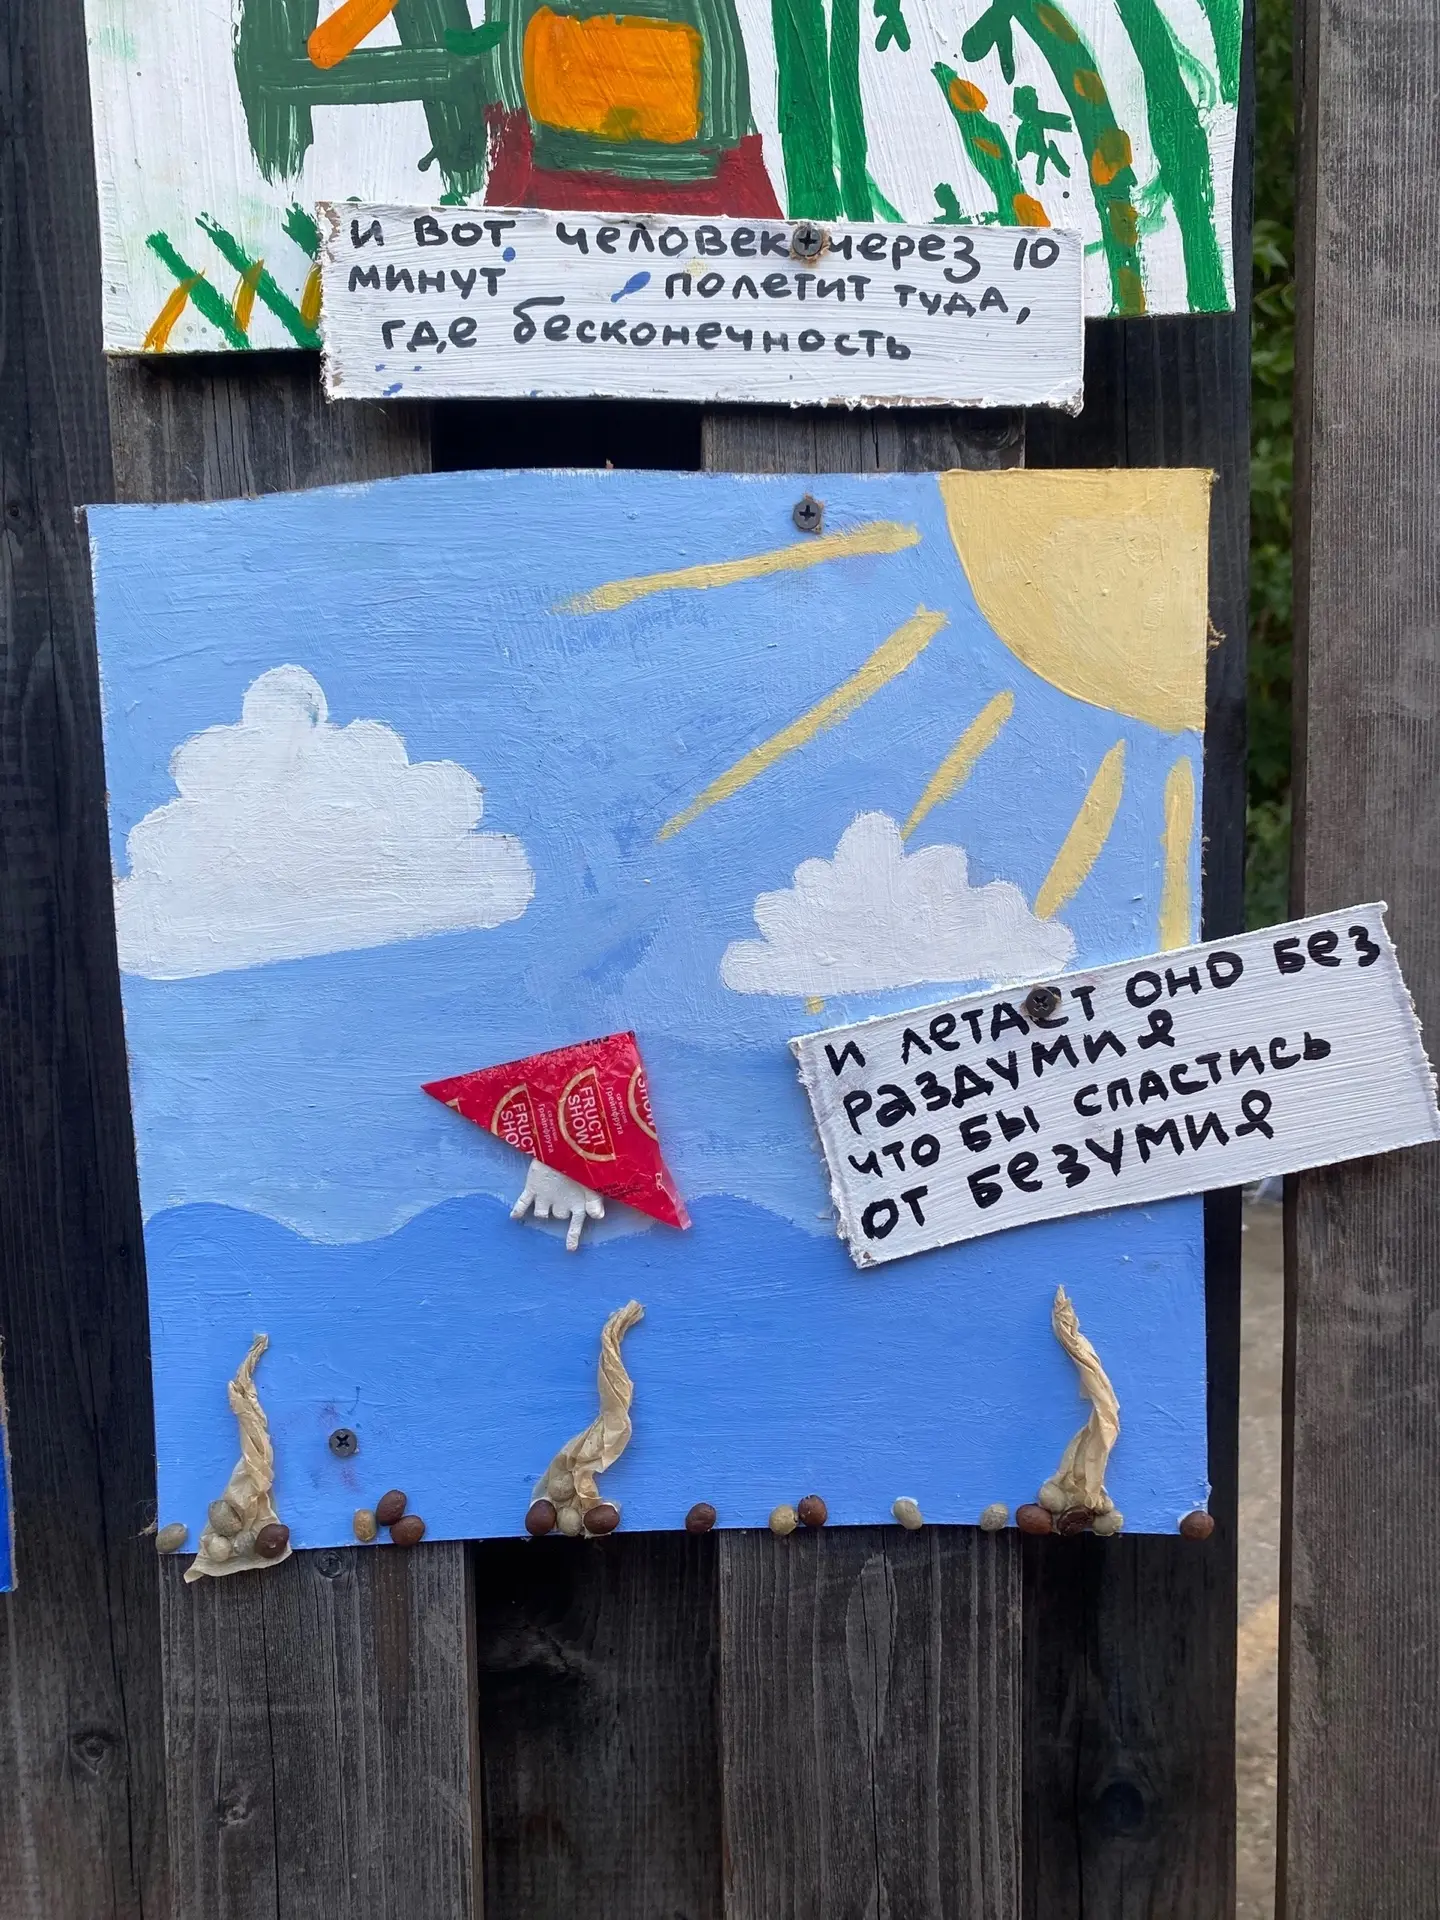 и вот человек через 10
минут полетит туда,
где бесконечность
FRUCTI
SHOW
со вкусом
Грейпфрута
FRUCTI
SHOW
со вкусом
Грейпфрута
SHOW
и летает оно без
раздумия
что бы спастись
от безумия